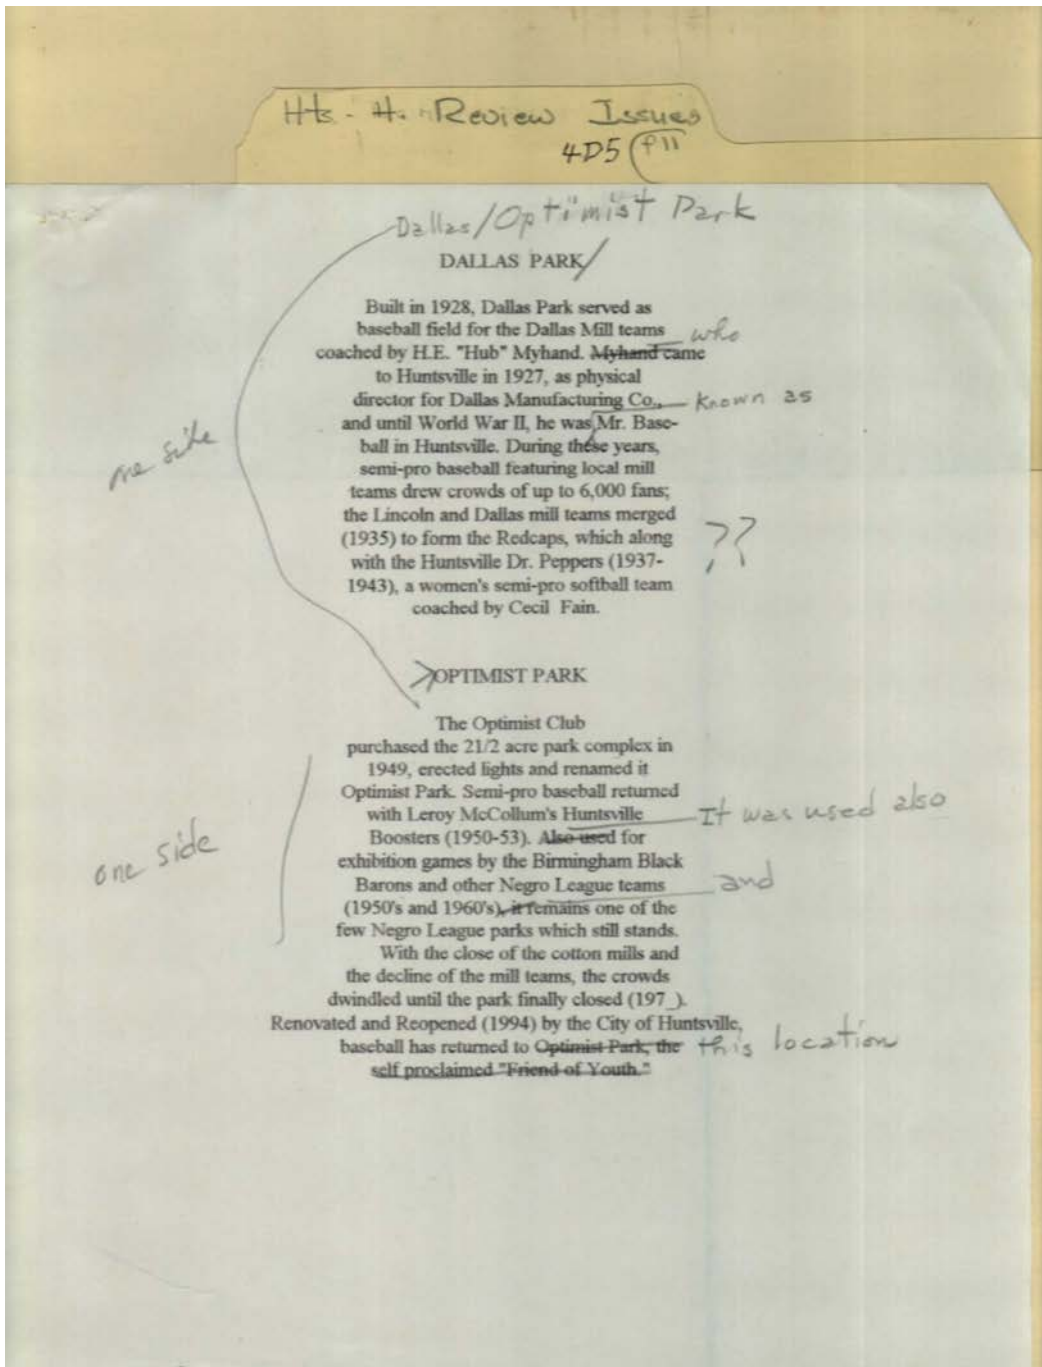 Hts. H. Review Issues
4D5 (f11
Dallas/Optimist Park
DALLAS PARK/
Built in 1928, Dallas Park served as
baseball field for the Dallas Mill teams
who
coached by H.E. "Hub" Myhand. Myhand came
to Huntsville in 1927, as physical
director for Dallas Manufacturing Co.,
known as
and until World War II, he was Mr. Base-
ball in Huntsville. During these years,
one side
semi-pro baseball featuring local mill
teams drew crowds of up to 6,000 fans;
the Lincoln and Dallas mill teams merged
(1935) to form the Redcaps, which along
??
with the Huntsville Dr. Peppers (1937-
1943), a women's semi-pro softball team
coached by Cecil Fain.
OPTIMIST PARK
The Optimist Club
purchased the 21/2 acre park complex in
1949, erected lights and renamed it
Optimist Park. Semi-pro baseball returned
with Leroy McCollum's Huntsville
It was used also
Boosters (1950-53). Also used for
one side
exhibition games by the Birmingham Black
Barons and other Negro League teams
and
(1950's and 1960's), it remains one of the
few Negro League parks which still stands.
With the close of the cotton mills and
the decline of the mill teams, the crowds
dwindled until the park finally closed (197_).
Renovated and Reopened (1994) by the City of Huntsville,
baseball has returned to Optimist Park, the
this location
self proclaimed "Friend of Youth."